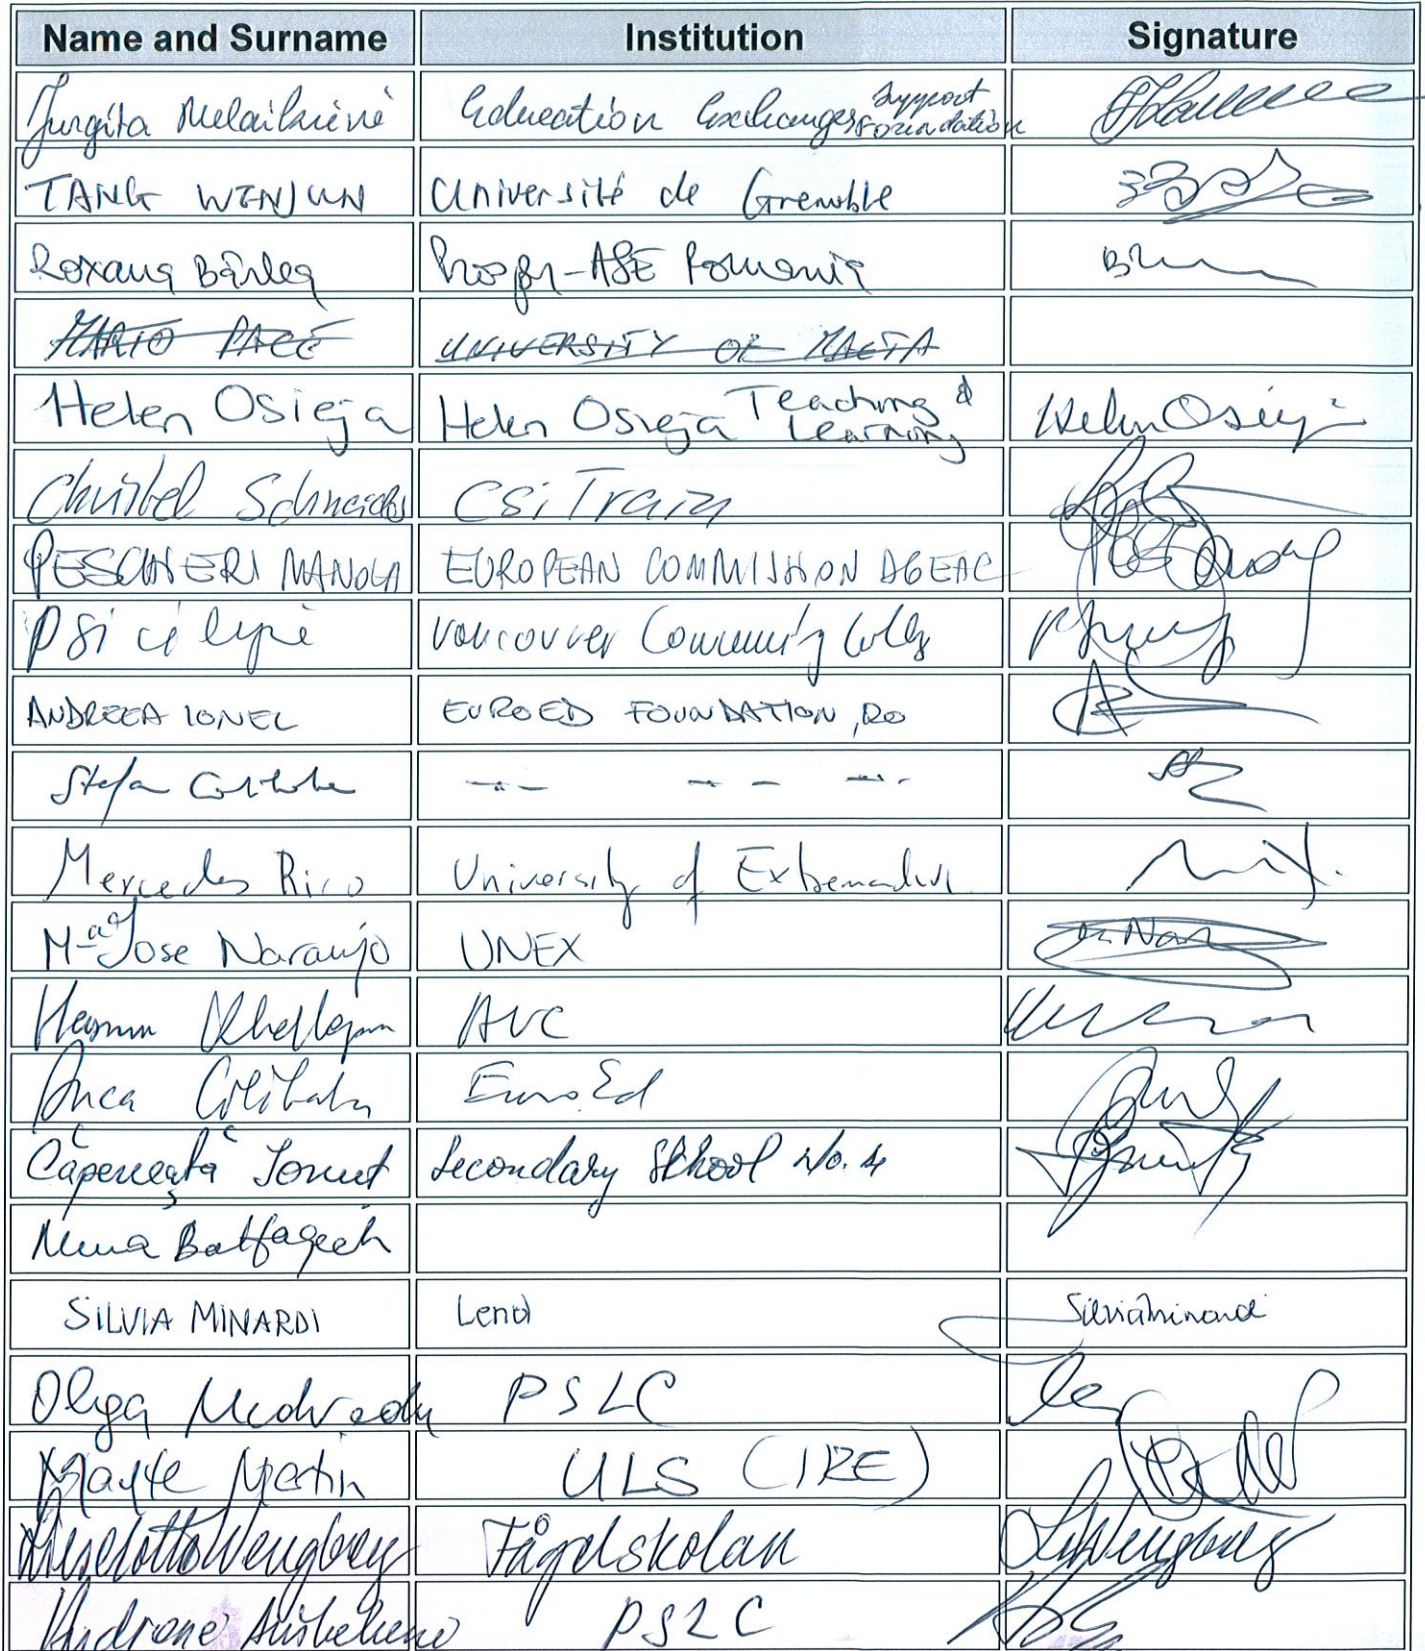 Name and Surname Institution Signature
Jurgita Melaikienė Education Exchanges Support Foundation
TANG WENJUN Université de Grenoble
Roxana Bârlea Prosper-ASE Romania
MARIO PACE UNIVERSITY OF MALTA
Helen Osieja Helen Osieja Teaching & Learning Helen Osieja
Christel Schneider CSiTrain
PESCHIERI MANOLA EUROPEAN COMMISSION DGEAC
Vancouver Community
ANDREEA IONEL EUROED FOUNDATION, RO
Stefan Colibaba
Mercedes Rico University of Extremadura
Mª Jose Naranjo UNEX
AVC
Anca Colibaba EuroEd
Căpeneață Ionuț Secondary School No. 4
SILVIA MINARDI Lend Silvia Minardi
Olga PSLC
Mayte Martin ULS (IRE)
Liselotte Wengberg Fågelskolan
PSLC